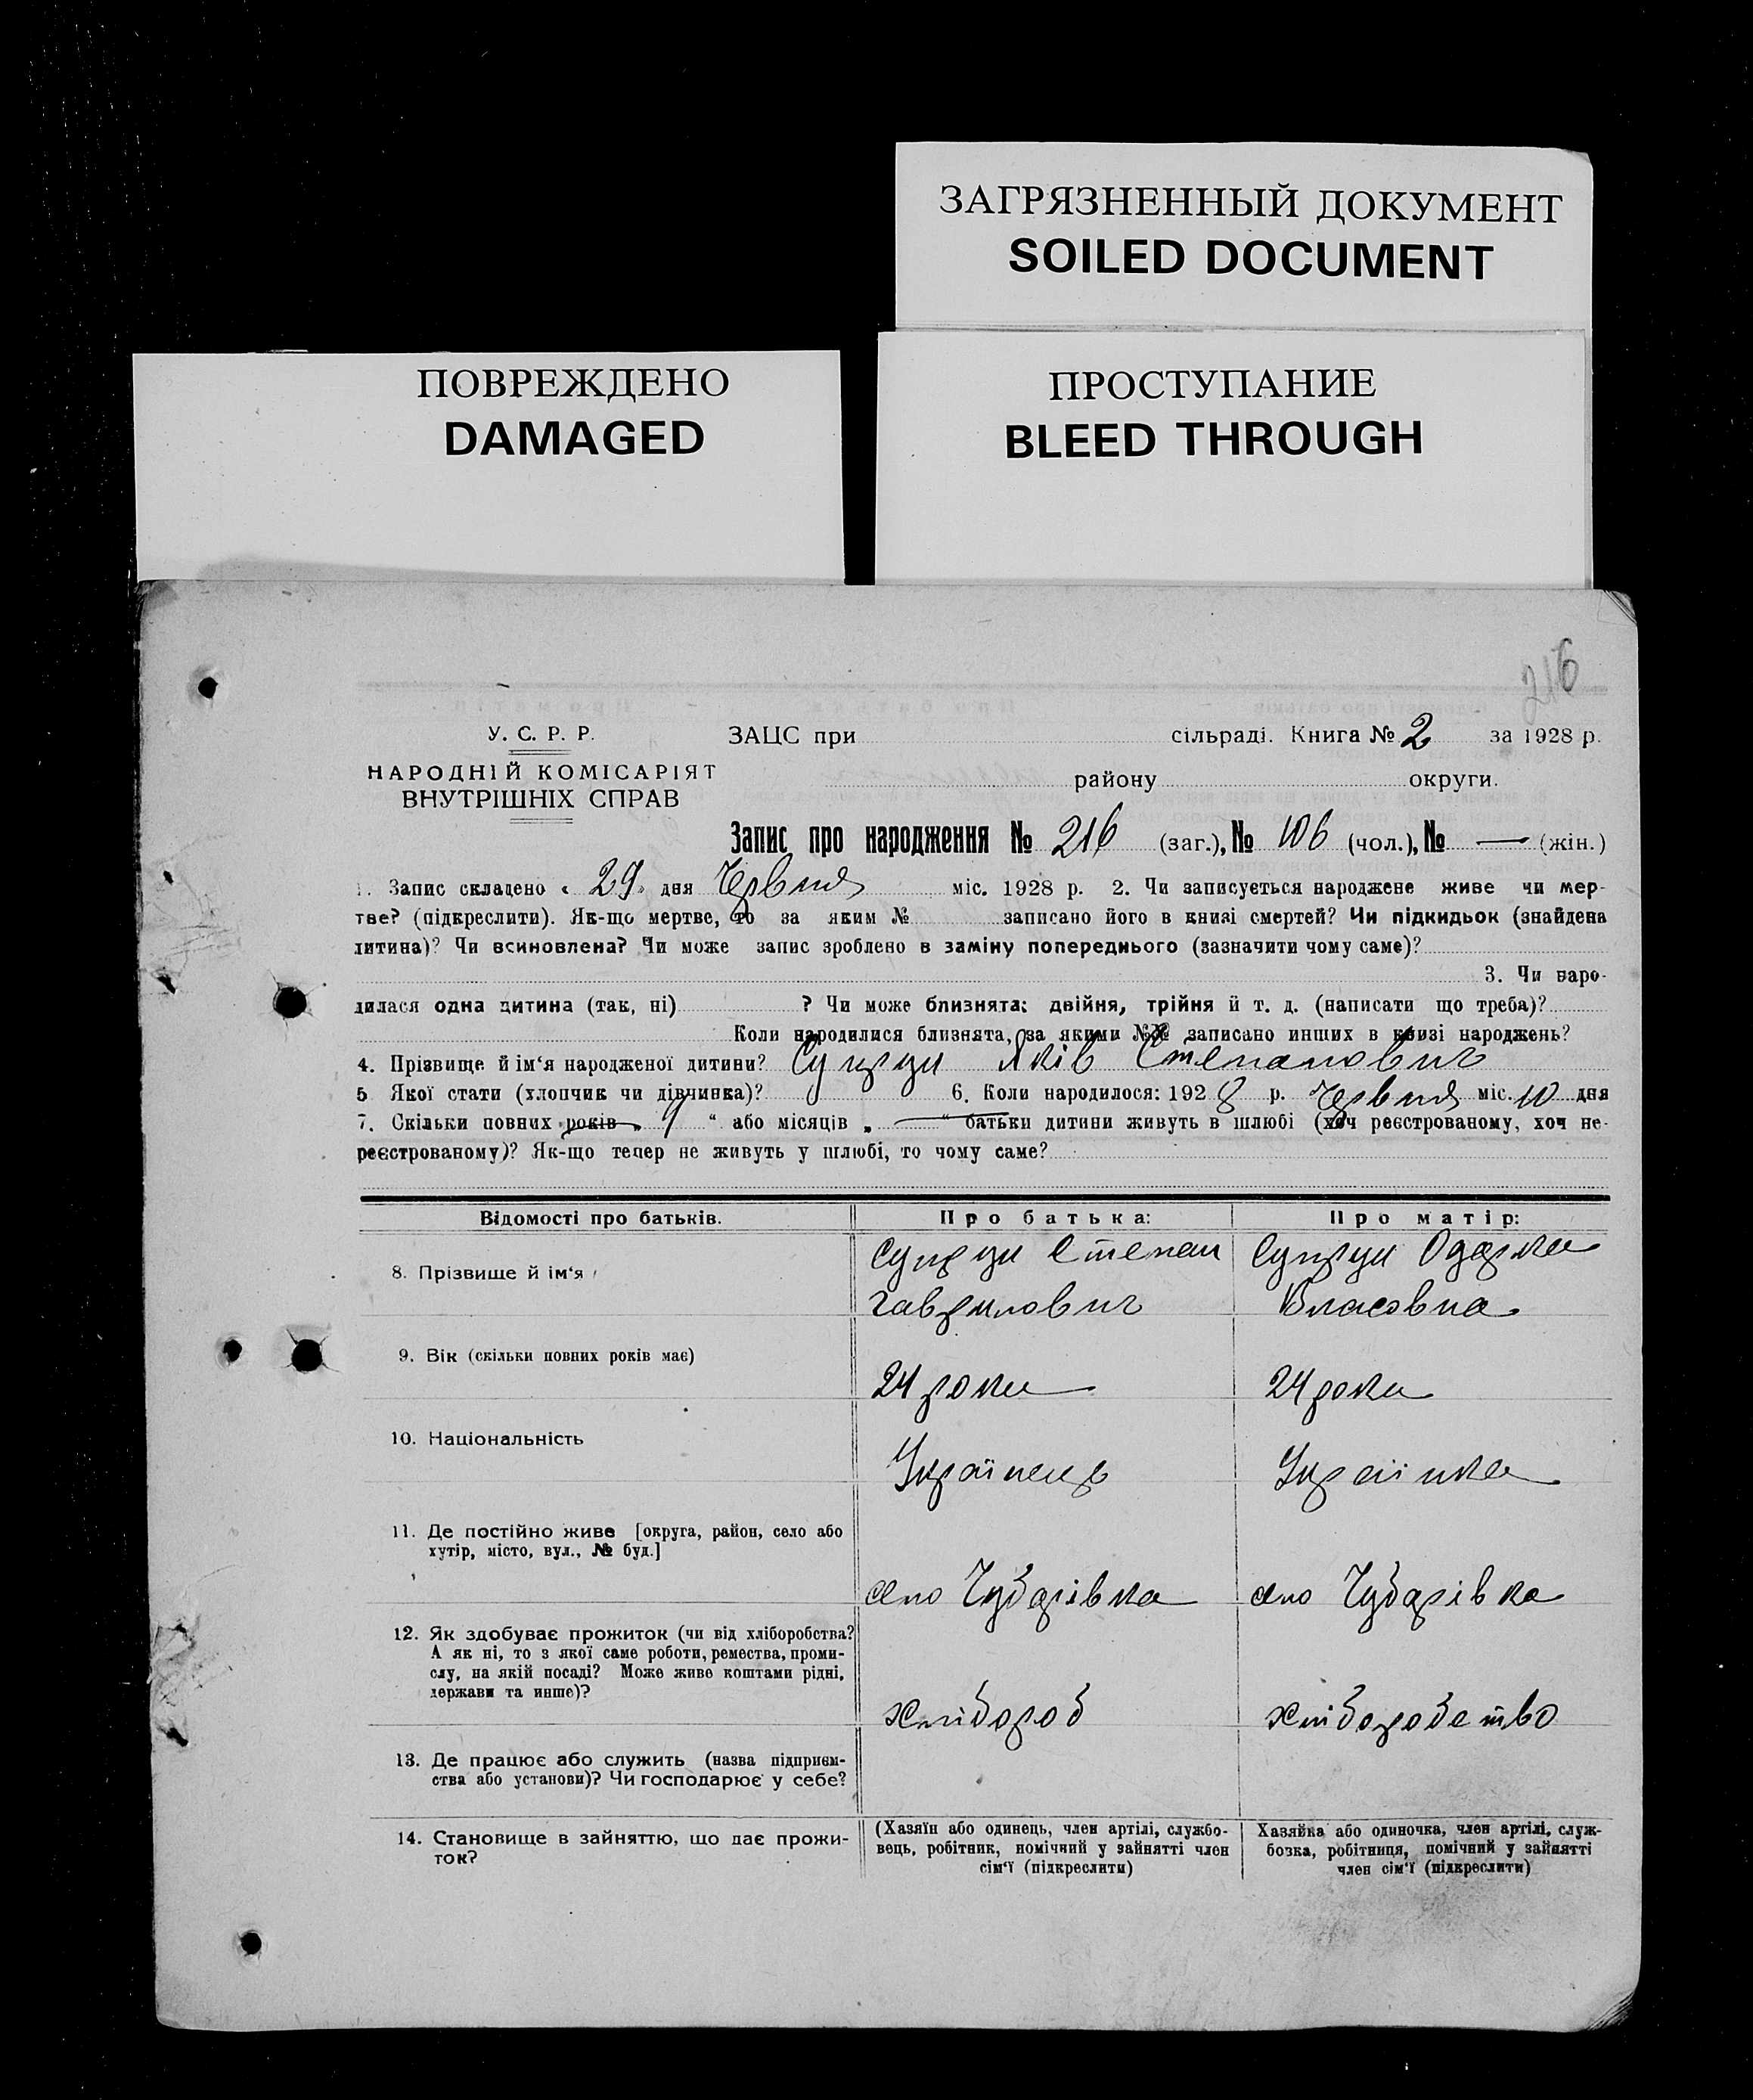 ЗАГРЯЗНЕННЫЙ ДОКУМЕНТ
SOILED DOCUMENT
ПОВРЕЖДЕНО
DAMAGED
ПРОСТУПАНИЕ
BLEED THROUGH
216
У. С. Р. Р.
НАРОДНІЙ КОМІСАРІЯТ
ВНУТРІШНІХ СПРАВ
ЗАЦС при сільраді. Книга № 2 за 1928 р.
району округи.
Запис про народження № 216 (заг.), № 106 (чол.), № — (жін.)
1. Запис складено « 29 » дня Червня міс. 1928 р. 2. Чи записується народжене живе чи мер-
тве? (підкреслити). Як-що мертве, то за яким № записано його в книзі смертей? Чи підкидьок (знайдена
дитина)? Чи всиновлена? Чи може запис зроблено в заміну попереднього (зазначити чому саме)?
3. Чи наро-
дилася одна дитина (так, ні) ? Чи може близнята: двійня, трійня й т. д. (написати що треба)?
Коли народилися близнята, за якими №№ записано инших в книзі народжень?
4. Прізвище й ім‘я народженої дитини? Супрун Яків Степанович
5 Якої стати (хлопчик чи дівчинка)? 6. Коли народилося: 1928 р. Червня міс. 10 дня
7. Скільки повних років „ “ або місяців „ — “ батьки дитини живуть в шлюбі (хоч реєстрованому, хоч не-
реєстрованому)? Як-що тепер не живуть у шлюбі, то чому саме?
Відомості про батьків. Про батька: Про матір:
8. Прізвище й ім‘я Супрун Степан Супрун Одарка
Гаврилович Власовна
9. Вік (скільки повних років має)
24 роки 24 роки
10. Національність
Українець Українка
11. Де постійно живе [округа, район, село або
хутір, місто, вул., № буд.]
село Чубарівка село Чубарівка
12. Як здобуває прожиток (чи від хліборобства?
А як ні, то з якої саме роботи, ремества, проми-
слу, на якій посаді? Може живе коштами рідні,
держави та инше)?
хлібороб хліборобство
13. Де працює або служить (назва підприєм-
ства або установи)? Чи господарює у себе?
14. Становище в зайняттю, що дає прожи-
ток?
(Хазяїн або одинець, член артілі, службо-
вець, робітник, помічний у зайнятті член
сім‘ї (підкреслити)
Хазяйка або одиночка, член артілі, служ-
бовка, робітниця, помічний у зайнятті
член сім‘ї (підкреслити)